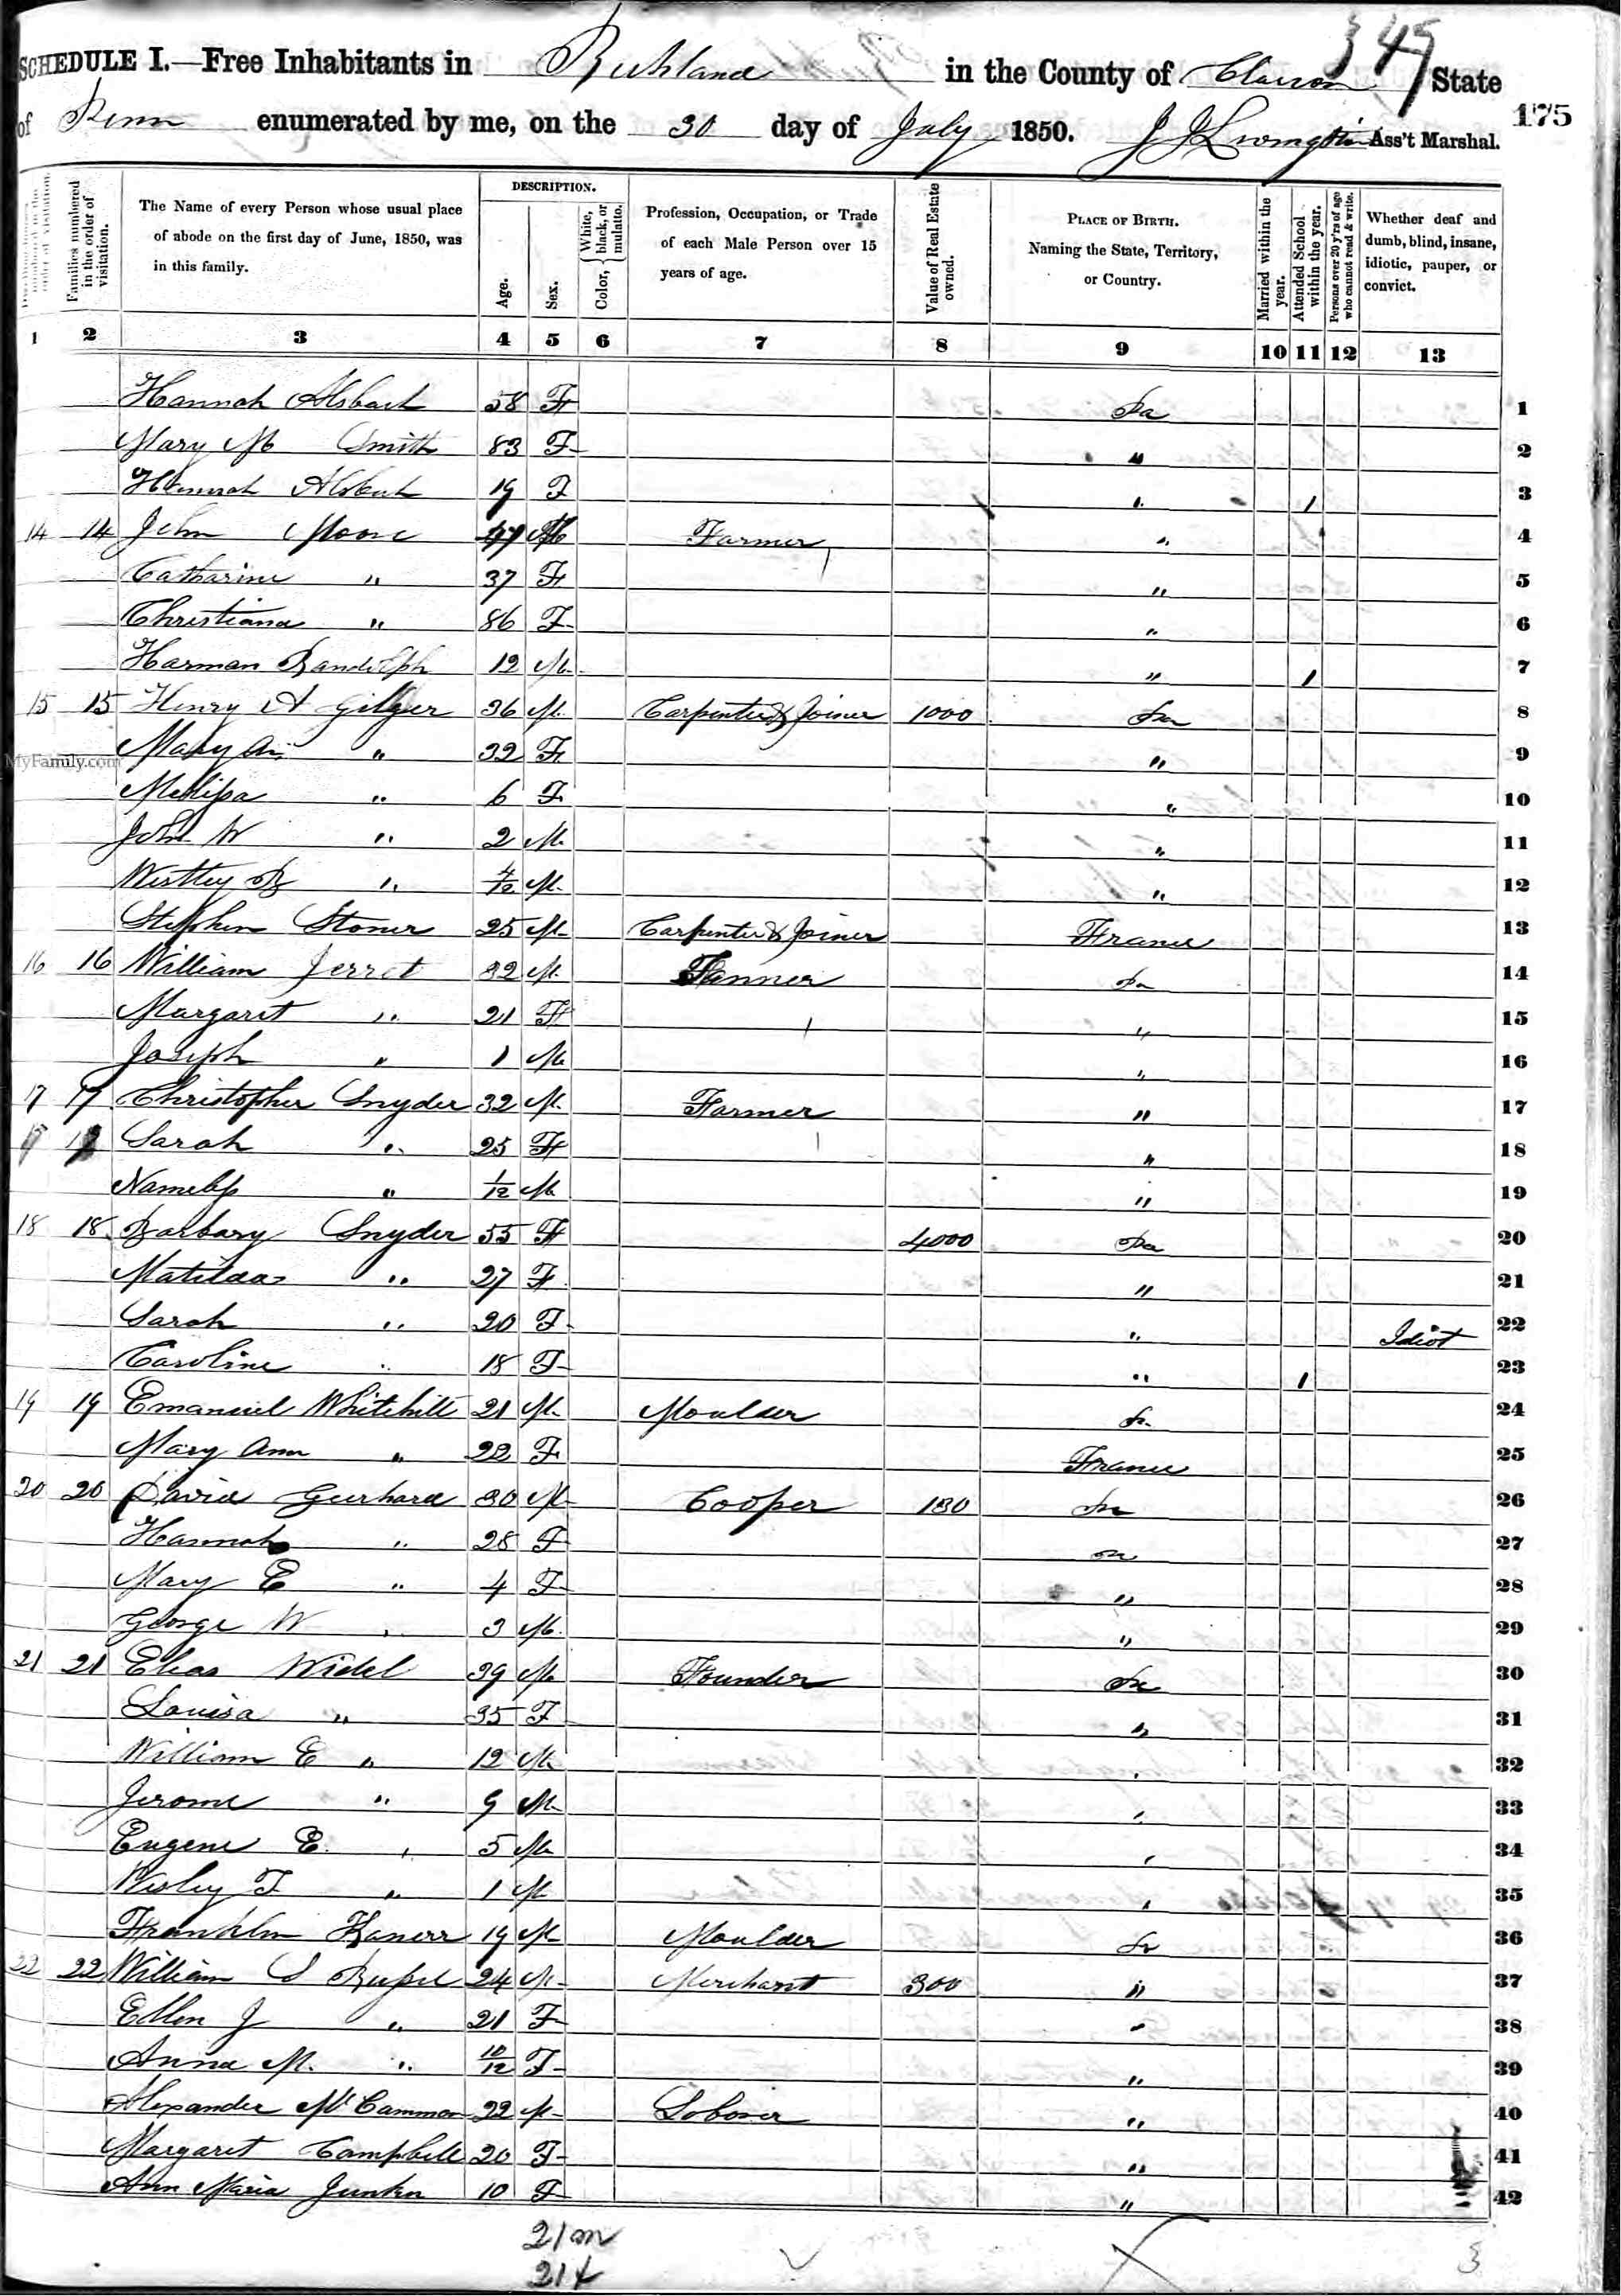 349
SCHEDULE I.—Free Inhabitants in Richland in the County of Clarion State
of Penn enumerated by me, on the 30 day of July 1850. J J Livingston Ass't Marshal.
175
Families numbered in the order of visitation.
The Name of every Person whose usual place of abode on the first day of June, 1850, was in this family.
DESCRIPTION.
Age.
Sex.
Color, { White, black, or mulatto.
Profession, Occupation, or Trade of each Male Person over 15 years of age.
Value of Real Estate owned.
PLACE OF BIRTH. Naming the State, Territory, or Country.
Married within the year.
Attended School within the year.
Persons over 20 y'rs of age who cannot read & write.
Whether deaf and dumb, blind, insane, idiotic, pauper, or convict.
1 2 3 4 5 6 7 8 9 10 11 12 13
Hannah Alsbach 58 F Pa 1
Mary M Smith 83 F " 2
Hannah Alsbach 19 F " 1 3
14 14 John Moore 47 M Farmer " 4
Catharine " 37 F " 5
Christiana " 86 F " 6
Harman Randolph 12 M " 1 7
15 15 Henry A Gilger 36 M Carpenter & Joiner 1000 Pa 8
Mary An " 32 F " 9
MyFamily.com
Melissa " 6 F " 10
John W " 2 M " 11
Westley B " 4/12 M " 12
Stephen Stoner 25 M Carpenter & Joiner France 13
16 16 William Jerret 32 M Tanner Pa 14
Margaret " 21 F " 15
Joseph " 1 M " 16
17 17 Christopher Snyder 32 M Farmer " 17
Sarah " 25 F " 18
Nameless " 1/12 M " 19
18 18 Barbary Snyder 55 F 4000 Pa 20
Matilda " 27 F " 21
Sarah " 20 F " Idiot 22
Caroline " 18 F " 1 23
19 19 Emanuel Whitehill 21 M Moulder Pa 24
Mary Ann " 22 F France 25
20 20 David Gearhard 30 M Cooper 130 Pa 26
Hannah " 28 F Pa 27
Mary E " 4 F " 28
George W " 3 M " 29
21 21 Elias Widel 39 M Founder Pa 30
Louisa " 35 F " 31
William E " 12 M " 32
Jerome " 9 M " 33
Eugene E. " 5 M " 34
Wesley F " 1 M " 35
Franklin 19 M Moulder Pa 36
22 22 William S Russel 24 M Merchant 300 " 37
Ellen J " 21 F " 38
Anna M. " 10/12 F " 39
Alexander McCammon 22 M Laborer " 40
Margaret Campbell 20 F " 41
Ann Maria Junkn 10 F " 42
21 m
21 f
3